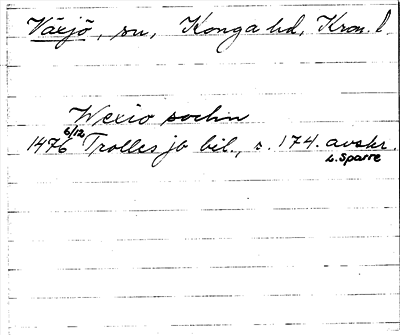 Växjö, sn, Konga hd, Kron. l
Wexio sochn
1476 6/12 Trolles jb bil., s. 174. avskr.
L. Sparre